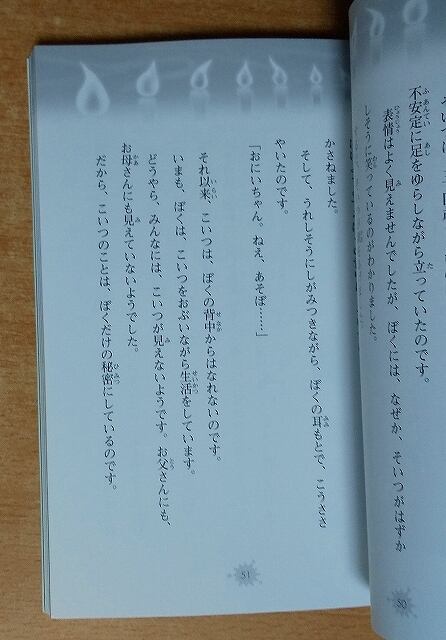 不安定に足をゆらしながら立っていたのです。
表情はよく見えませんでしたが、ぼくには、なぜか、そいつがはずか
しそうに笑っているのがわかりました。
50
かさねました。
そして、うれしそうにしがみつきながら、ぼくの耳もとで、こうささ
やいたのです。
「おにいちゃん。ねえ、あそぼ……」
それ以来、こいつは、ぼくの背中からはなれないのです。
いまも、ぼくは、こいつをおぶいながら生活をしています。
どうやら、みんなには、こいつが見えないようです。お父さんにも、
お母さんにも見えていないようでした。
だから、こいつのことは、ぼくだけの秘密にしているのです。
51